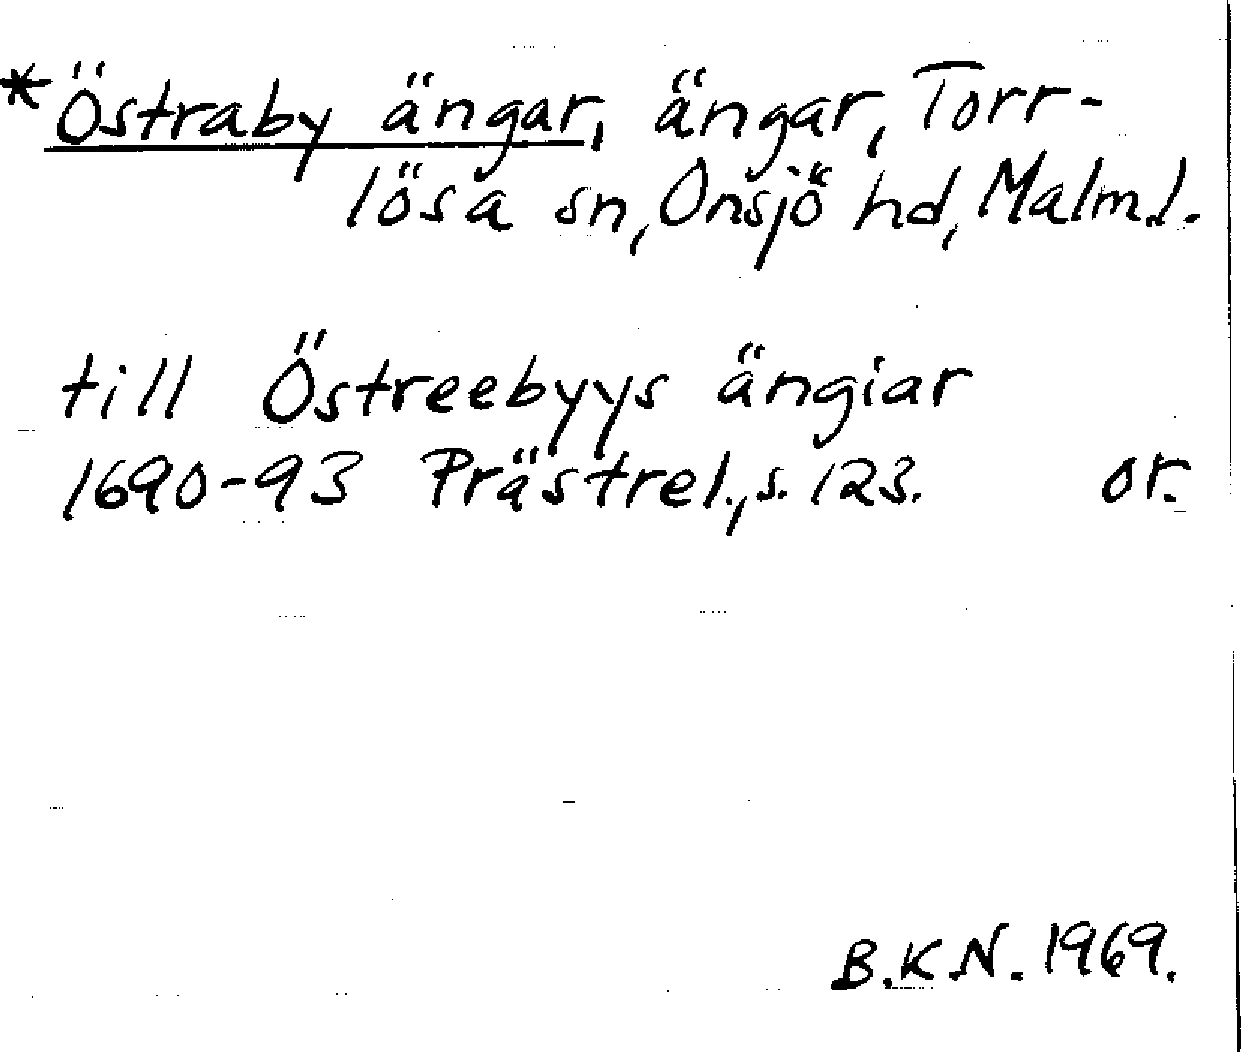 *Östraby ängar, ängar, Torr-
lösa sn, Onsjö hd, Malm.l.
till Östreebyys ängiar
1690-93 Prästrel., s. 123. or.
B.K.N. 1969.